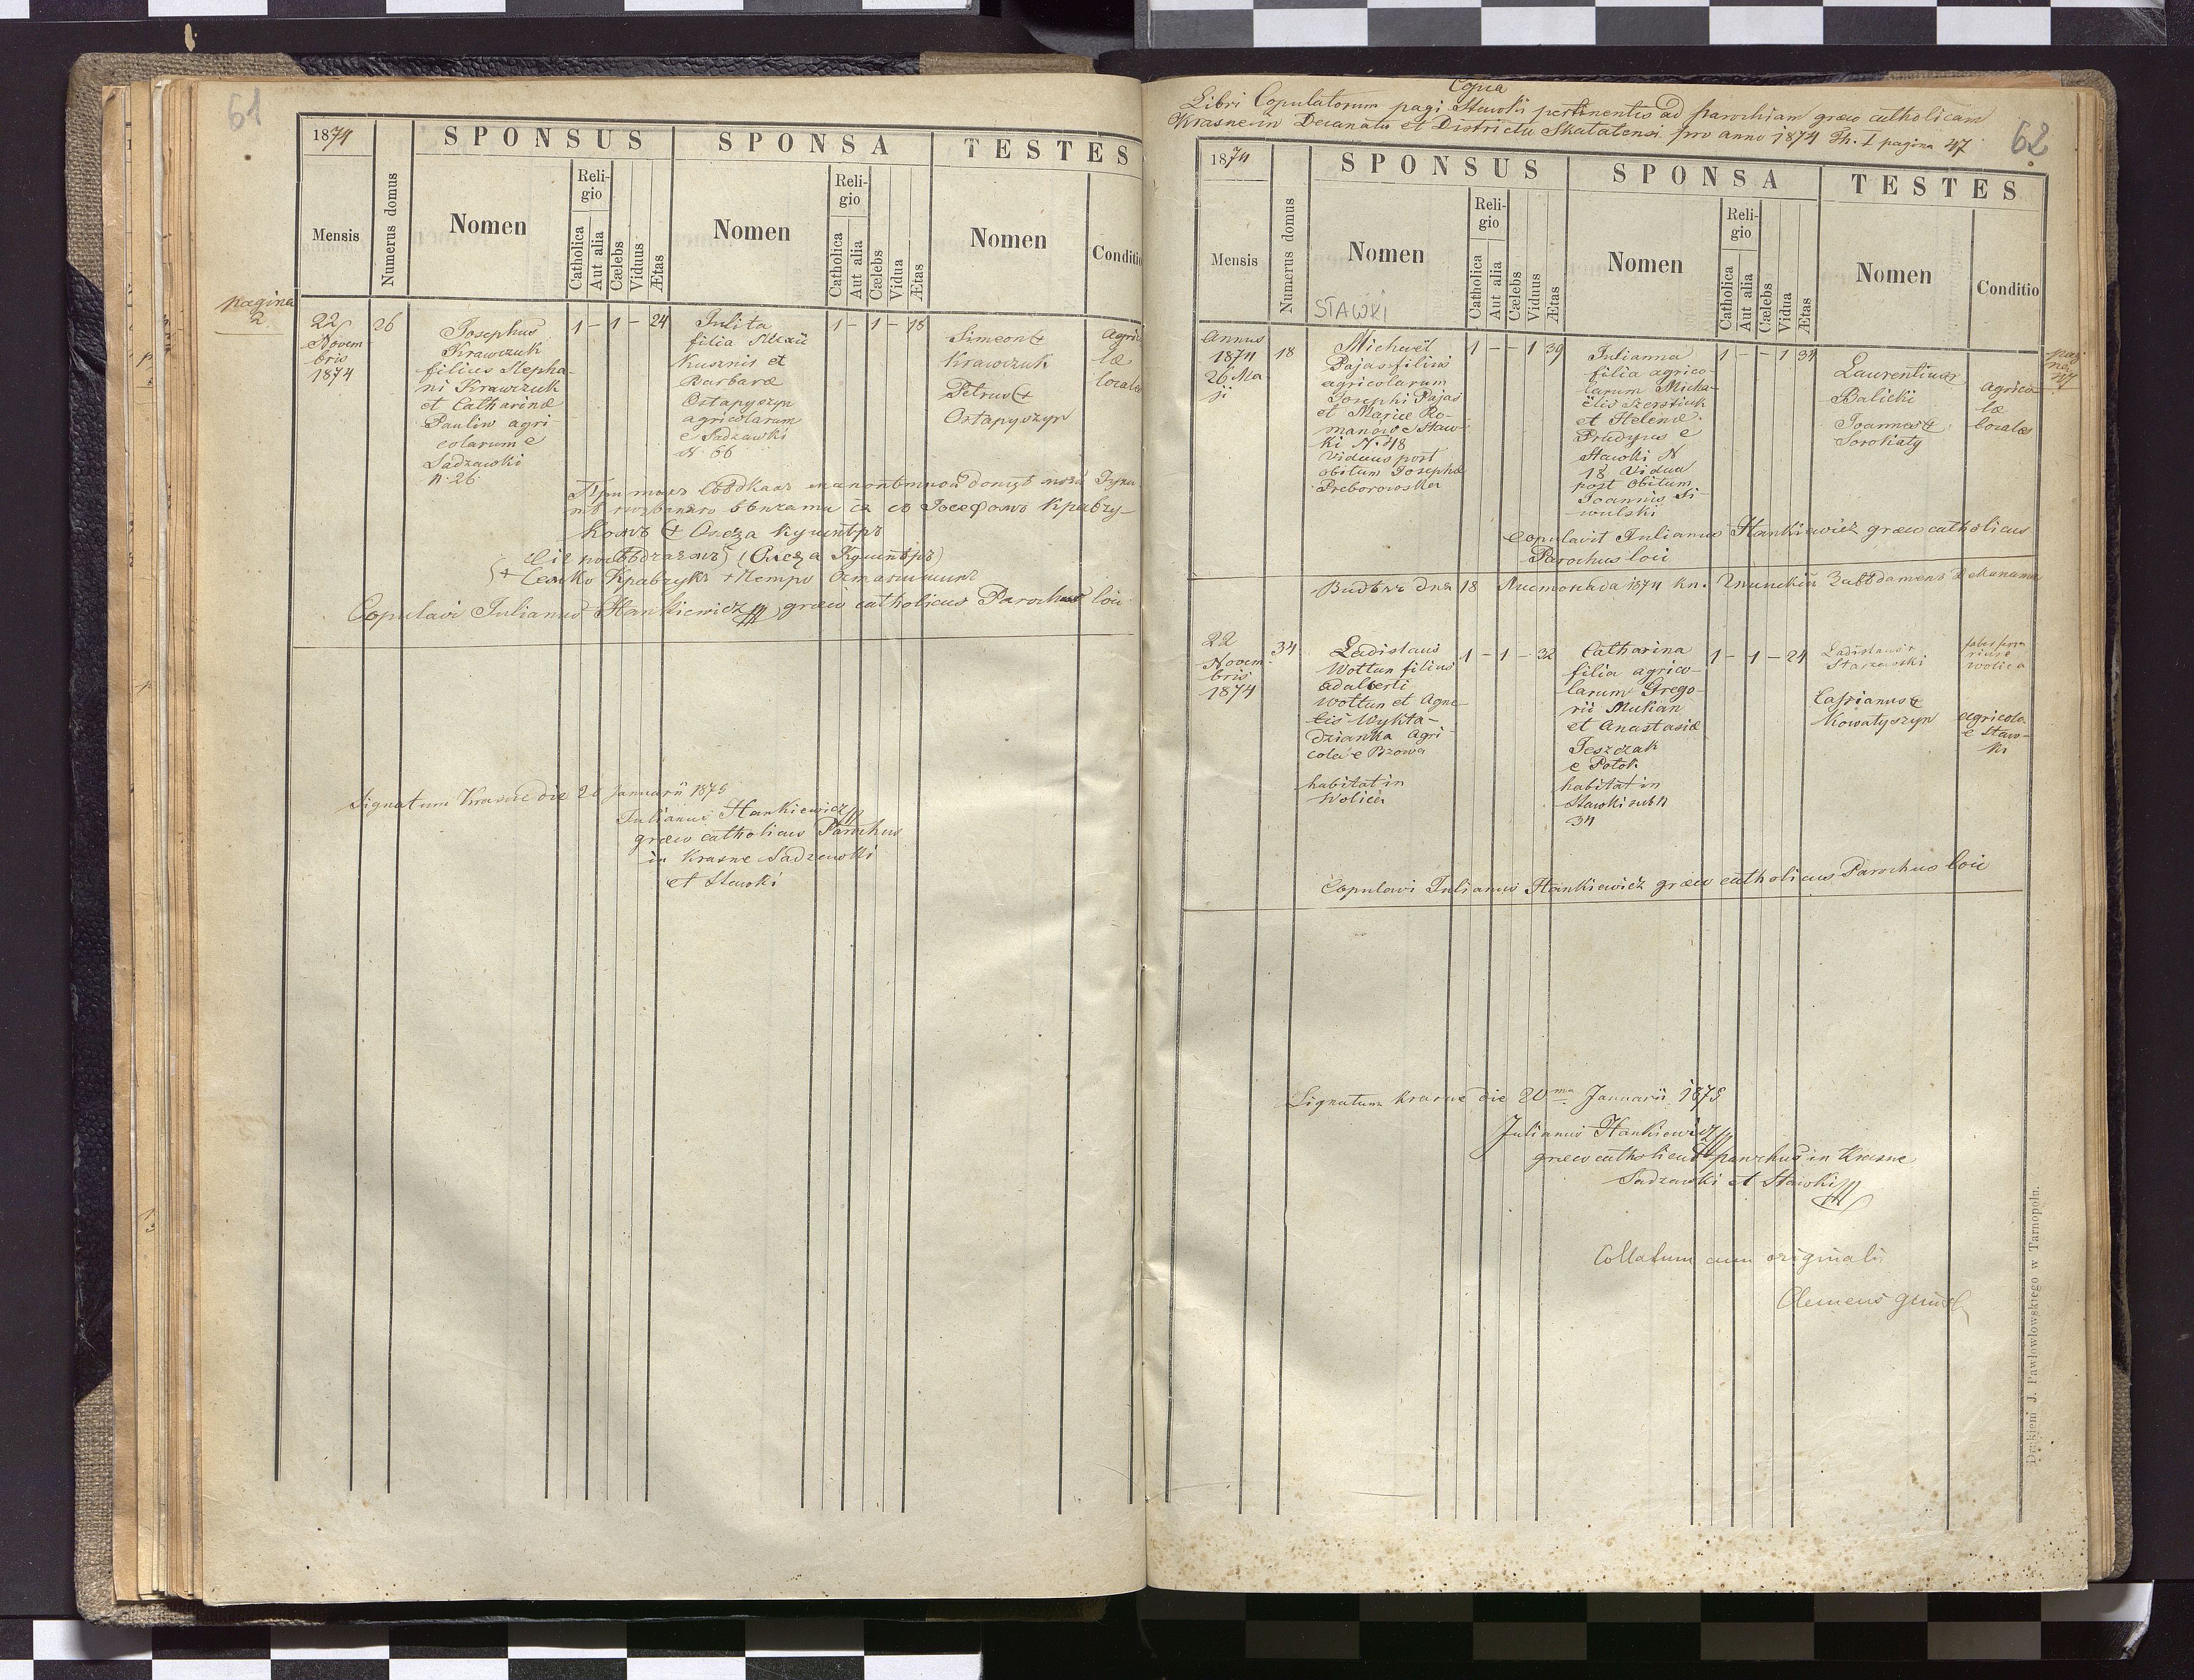 61
1874
SPONSUS
SPONSA
TESTES
Mensis
Numerus domus
Nomen
Religio
Catholica
Aut alia
Cælebs
Viduus
Ætas
Nomen
Religio
Catholica
Aut alia
Cælebs
Vidua
Ætas
Nomen
Conditio
pagina
2
22
Novem
bris
1874
26
Josephus
Krawczuk
filius Stepha-
ni Krawczuk
et Catharinæ
Paulin agri
colarum e
Sadzawki
N. 26
1 – 1 – 24
Julita
filia Alexii
Kusznir et
Barbaræ
Ostapyszyn
agricolarum
e Sadzawki
N. 66
1 – 1 – 18
Simeon +
Krawczuk
Petrus +
Ostapyszyn
agrico
læ
locales
Copulavi Julianus Hankiewicz græco catholicus Parochus loci
Signatum Krasne die 20 Januarii 1875
Julianus Hankiewicz
græco catholicus Parochus
in Krasne Sadzawki
et Stawki
Copia
Libri Copulatorum pagi Stawki pertinentis ad parochiam græco catholicam
Krasne in Decanatu et Districtu Skalatensi pro anno 1874 Th. I pagina 47
62
1874
SPONSUS
SPONSA
TESTES
Mensis
Numerus domus
Nomen
Religio
Catholica
Aut alia
Cælebs
Viduus
Ætas
Nomen
Religio
Catholica
Aut alia
Cælebs
Vidua
Ætas
Nomen
Conditio
STAWKI
pagi
na
47
Annus
1874
26 Ma
ji
18
Michaël
Pajas filius
agricolarum
Josephi Pajas
et Mariæ Ro-
manów e Staw-
ki N. 18
Viduus post
obitum Josephæ
Preborowska
1 – – 1 39
Julianna
filia agrico-
larum Micha-
ëlis Szerstiuk
et Helenæ
Prudyus e
Stawki N
18 Vidua
post obitum
Joannis Si-
wulski
1 – – 1 34
Laurentius +
Balicki
Joannes +
Sorokaty
agrico
læ
locales
Copulavit Julianus Hankiewicz græco catholicus
Parochus loci
22
Novem
bris
1874
34
Ladislaus
Wottun filius
Adalberti
Wottun et Agne-
tis Wykta-
dzianka Agri-
colæ e Bzowa
habitat in
Wolica
1 – 1 – 32
Catharina
filia agrico-
larum Grego-
rii Mukan
et Anastasiæ
Jeszczak
e Potok
habitat in
Stawki sub N
34
1 – 1 – 24
Ladislaus +
Starzewski
Cassianus +
Kowatyszyn
faber ferra
rius e
Wolica
agricola
e Staw-
ki
Copulavi Julianus Hankiewicz græco catholicus Parochus loci
Signatum Krasne die 20ma Januarii 1875
Julianus Hankiewicz
græco catholicus parochus in Krasne
Sadzawki et Stawki
Collatum cum originali
Drukiem J. Pawłowskiego w Tarnopolu.